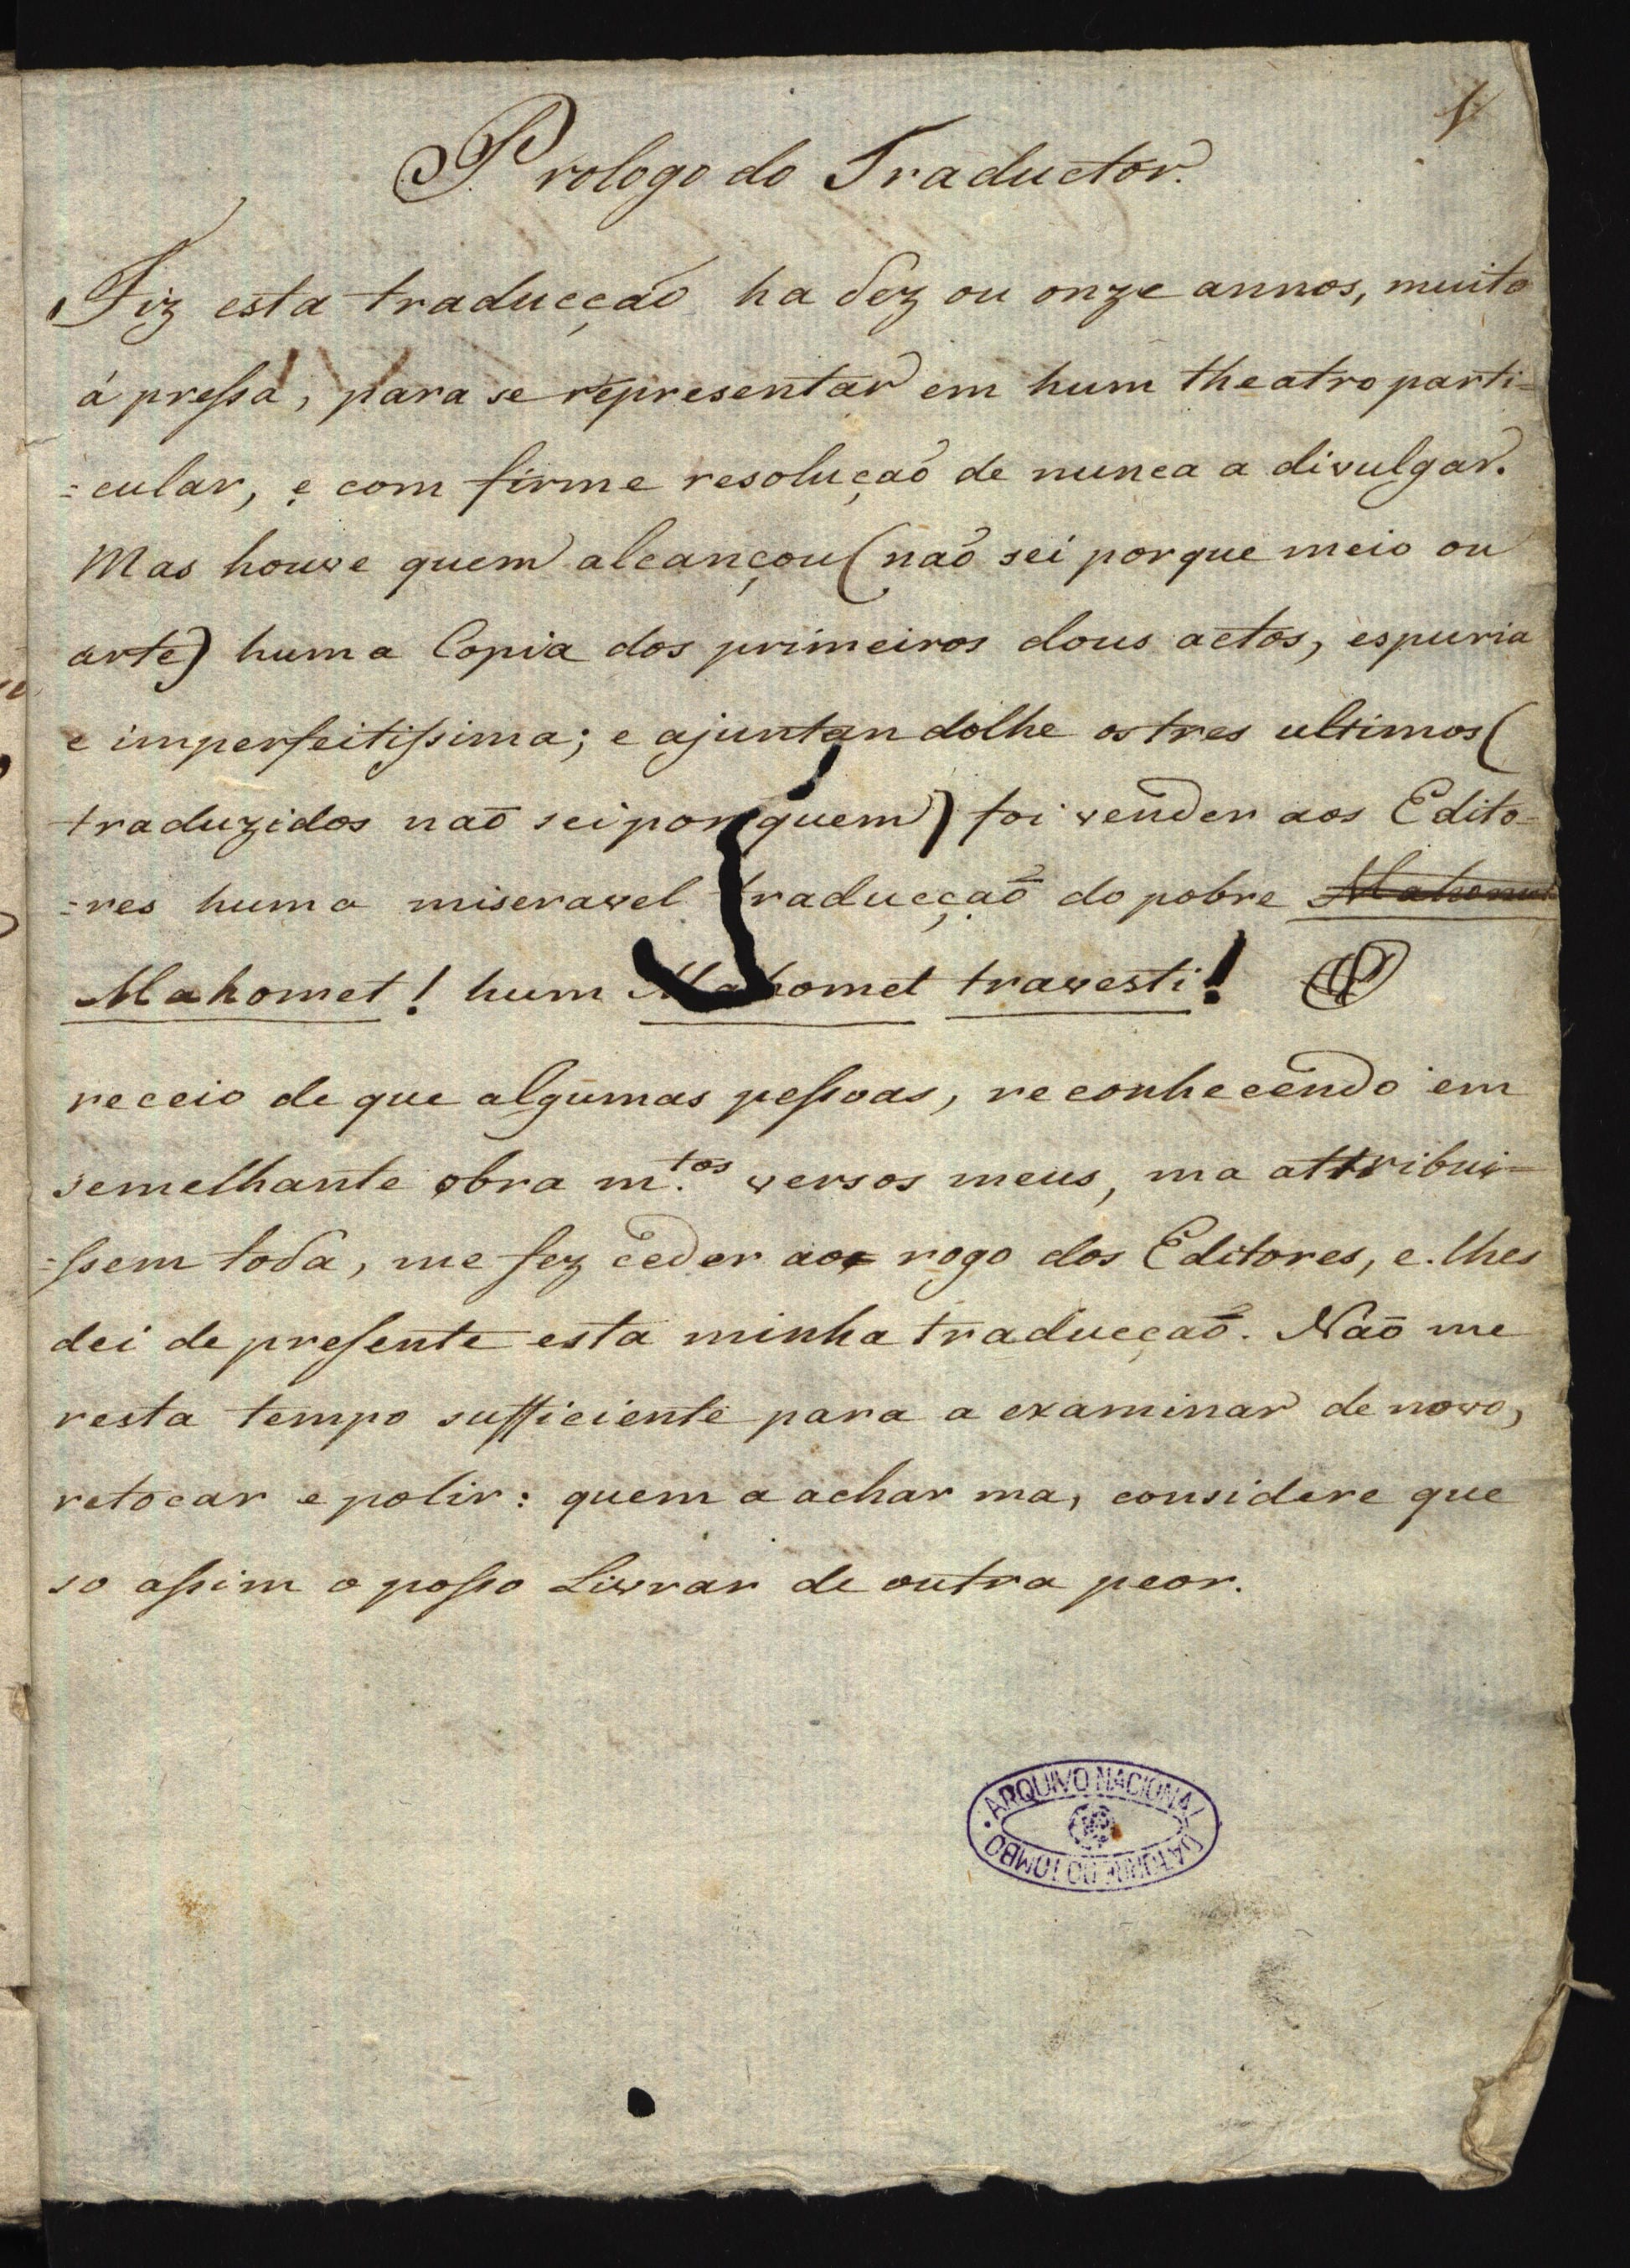 1
Prologo do Traductor.
Fiz esta traducção ha dez ou onze annos, muito
á pressa, para se representar em hum theatro parti=
=cular, e com firme resolução de nunca a divulgar.
Mas houve quem alcançou (não sei porque meio ou
arte) huma Copia dos primeiros dous actos, espuria
e imperfeitissima; e ajuntandolhe os tres ultimos (
traduzidos não sei por quem) foi vender aos Edito=
=res huma miseravel traducção do pobre Mahomet
Mahomet! hum Mahomet travesti! O
receio de que algumas pessoas, reconhecendo em
semelhante obra m.tos versos meus, ma attribui=
=ssem toda, me fez ceder ao rogo dos Editores, e lhes
dei de presente esta minha traducção. Não me
resta tempo sufficiente para a examinar de novo,
retocar e polir: quem a achar ma, considere que
so assim o posso Livrar de outra peor.
ARQUIVO NACIONAL
DA TORRE DO TOMBO